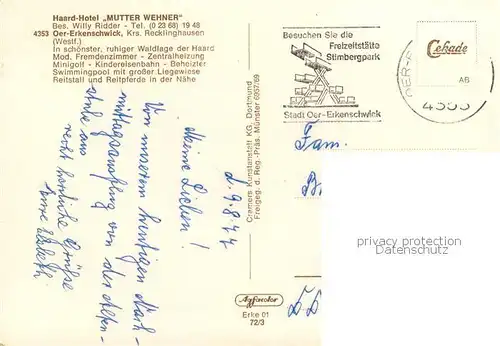 Haard-Hotel „MUTTER WEHNER"
Bes. Willy Ridder - Tel. (0 23 68) 19 48
4353 Oer-Erkenschwick, Krs. Recklinghausen
(Westf.)
In schönster, ruhiger Waldlage der Haard
Mod. Fremdenzimmer - Zentralheizung
Minigolf - Kindereisenbahn - Beheizter
Swimmingpool mit großer Liegewiese
Reitstall und Reitpferde in der Nähe
d. 9.8.77
Meine Lieben!
Von unserem heutigen Nach-
mittagsausflug von der Alten-
stube aus
recht herzliche Grüße
Eure
Cramers Kunstanstalt KG. Dortmund
Freigeg. d. Reg.-Präs. Münster 6957/69
Agfacolor
Erke 01
72/3
Besuchen Sie die
Freizeitstätte
Stimbergpark
Stadt Oer-Erkenschwick
OER-
4353
Cekade
AB
Fam.
B
privacy protection
Datenschutz